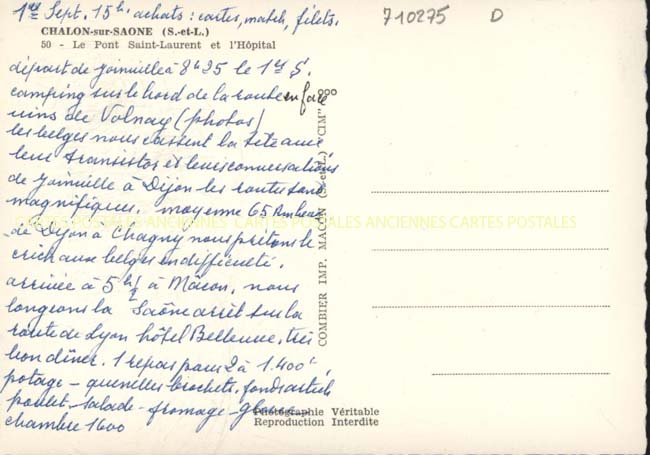 1er Sept. 15h. achats: cartes, match, filets.
710275 D
CHALON-sur-SAONE (S.-et-L.)
50 - Le Pont Saint-Laurent et l'Hôpital
départ de Joinville à 8h25 le 1er S.
camping sur le bord de la route en face
vins de Volnay (photos)
les belges nous cassent la tête avec
leur transistos et leurs conversations
de Joinville à Dijon les routes sont
magnifiques. moyenne 65
de Dijon à Chagny nous prêtons le
cric aux belges en difficulté.
arrivée à 5h1/2 à Mâcon, nous
longeons la Saône arrêt sur la
route de Lyon hôtel Bellevue, très
bon dîner. 1 repas pour 2 à 1.400f,
potage - quenelles brochets. fonds artich
poulet - salade - fromage - glaces
chambre 1600
CARTES POSTALES ANCIENNES CARTES POSTALES ANCIENNES CARTES POSTALES
COMBIER IMP. MACON (S.-et-L.) "CIM"
Photographie Véritable
Reproduction Interdite